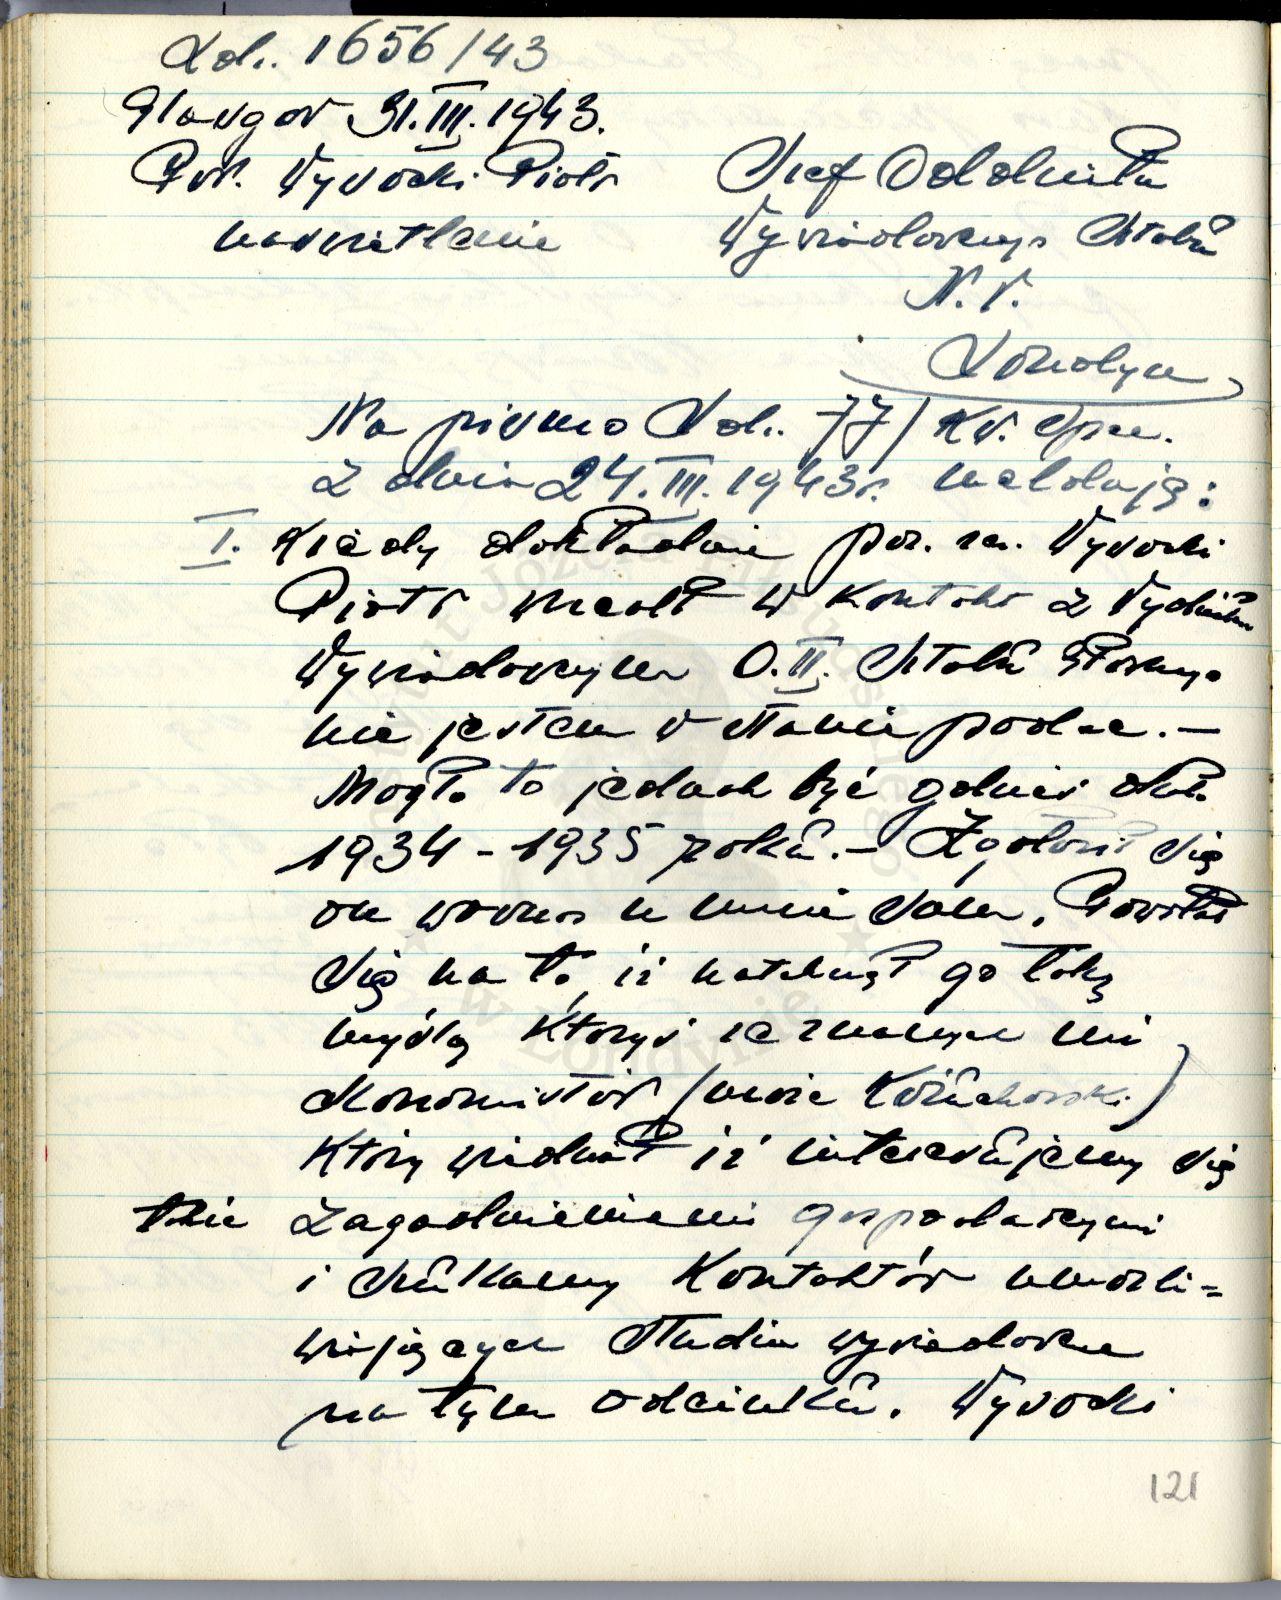 Ldz. 1656/43
Glasgow 31.III.1943.
Por. Wysocki Piotr
naświetlenie
Szef Oddziału
Wywiadowczego Sztabu
N. W.
Londyn
Na pismo Ldz. 77/Kw. Spec.
z dnia 24.III.1943r. melduję:
I. Kiedy dokładnie por. rez. Wysocki
Piotr wszedł w kontakt z Wydziałem
Wywiadowczym O.II. Sztabu Głównego
nie jestem w stanie podać.-
Mogło to jednak być gdzieś około
1934-1935 roku.- Zgłosił się
on wówczas u mnie sam. Powołał
się na to, iż natchnął go taką
myślą któryś ze znanych mi
ekonomistów (może Kożuchowski)
który wiedział iż interesujemy się
także zagadnieniami gospodarczymi
i szukamy kontaktów umożli=
wiających studia wywiadowcze
na tym odcinku. Wysocki
121
Instytut Józefa Piłsudskiego
w Londynie